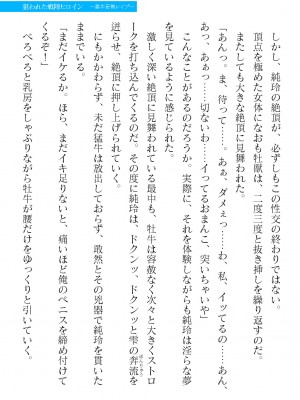 しかし、純玲の絶頂が、必ずしもこの性交の終わりではない。
頂点を極めた女体になおも牡獣は、二度三度と抜き挿しを繰り返すのだ。
またしても大きな絶頂に見舞われた。
「あんっ。ま、待って……。あぁ、ダメぇっ……わ、私、イッてるの……あん、
あっ、あぁっ……切ないわ……イってるおまんこ、突いちゃいや」
こんなことがあるのだろうか。実際に、それを体験しながらも純玲は淫らな夢
を見ているように感じられた。
激しく深い絶頂に見舞われている最中も、牡牛は容赦なく次々と大きくストロ
ークを打ち込んでくるのだ。その度に純玲は、ドクンッ、ドクンッと雫の奔流を
迸らせ、絶頂に押し上げられていく。
にも拘わらず、未だ猛牛は放出しておらず、敢然とその兇器で純玲を貫いた
「まだイケるか。ほら、まだイキ足りないと、痛いほど俺のペニスを締め付けて
くるぞ！」
べろべろと乳房をしゃぶりながら牡牛が腰だけをゆっくりと引いていく。